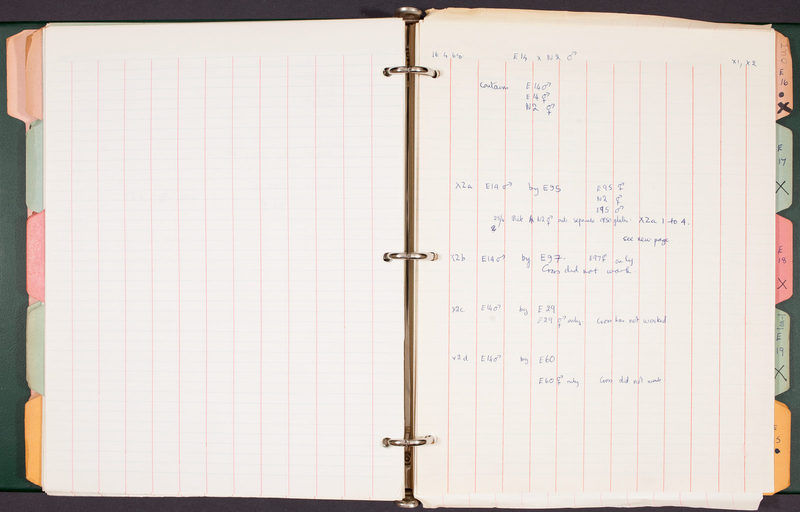 E14 x N2 ♂
X1, X2
Contains E14 ♂
E14 ⚥
N2 ⚥
X2a E14 ♂ by E95 E95 ⚥
N2 ⚥
E95 ♂
Pick N2 ⚥ onto separate plates. X2a 1 to 4.
see new page
X2b E14 ♂ by E97. E97 ⚥ only
Cross did not work
X2c E14 ♂ by E29
E29 ⚥ only Cross has not worked
X2d E14 ♂ by E60
E60 ⚥ only Cross did not work
E
16
X
E
17
X
E
18
X
E
19
X